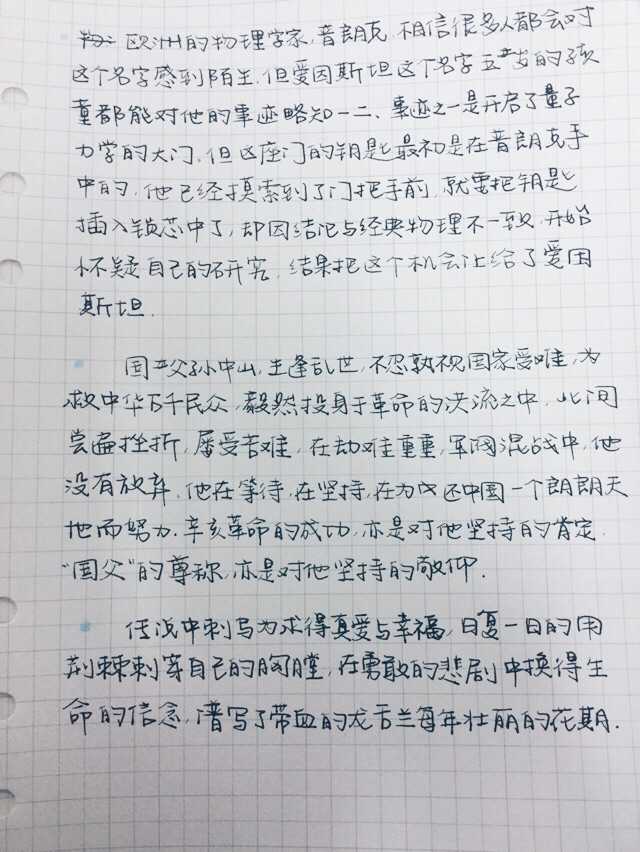 欧洲的物理学家,普朗克,相信很多人都会对
这个名字感到陌生.但爱因斯坦这个名字五岁的孩
童都能对他的事迹略知一二、事迹之一是开启了量子
力学的大门.但这座门的钥匙最初是在普朗克手
中的,他已经摸索到了门把手前,就要把钥匙
插入锁芯中了,却因结论与经典物理不一致,开始
怀疑自己的研究,结果把这个机会让给了爱因
斯坦.
国父孙中山,生逢乱世,不忍孰视国家受难,为
救中华万千民众,毅然投身于革命的洪流之中.此间
尝遍挫折,屡受苦难,在劫难重重,军阀混战中,他
没有放弃.他在等待,在坚持,在为了还中国一个朗朗天
地而努力.辛亥革命的成功,亦是对他坚持的肯定.
"国父"的尊称,亦是对他坚持的敬仰.
传说中刺鸟为求得真爱与幸福,日复一日的用
荆棘刺穿自己的胸膛,在勇敢的悲剧中换得生
命的信念,谱写了带血的龙舌兰每年壮丽的花期.